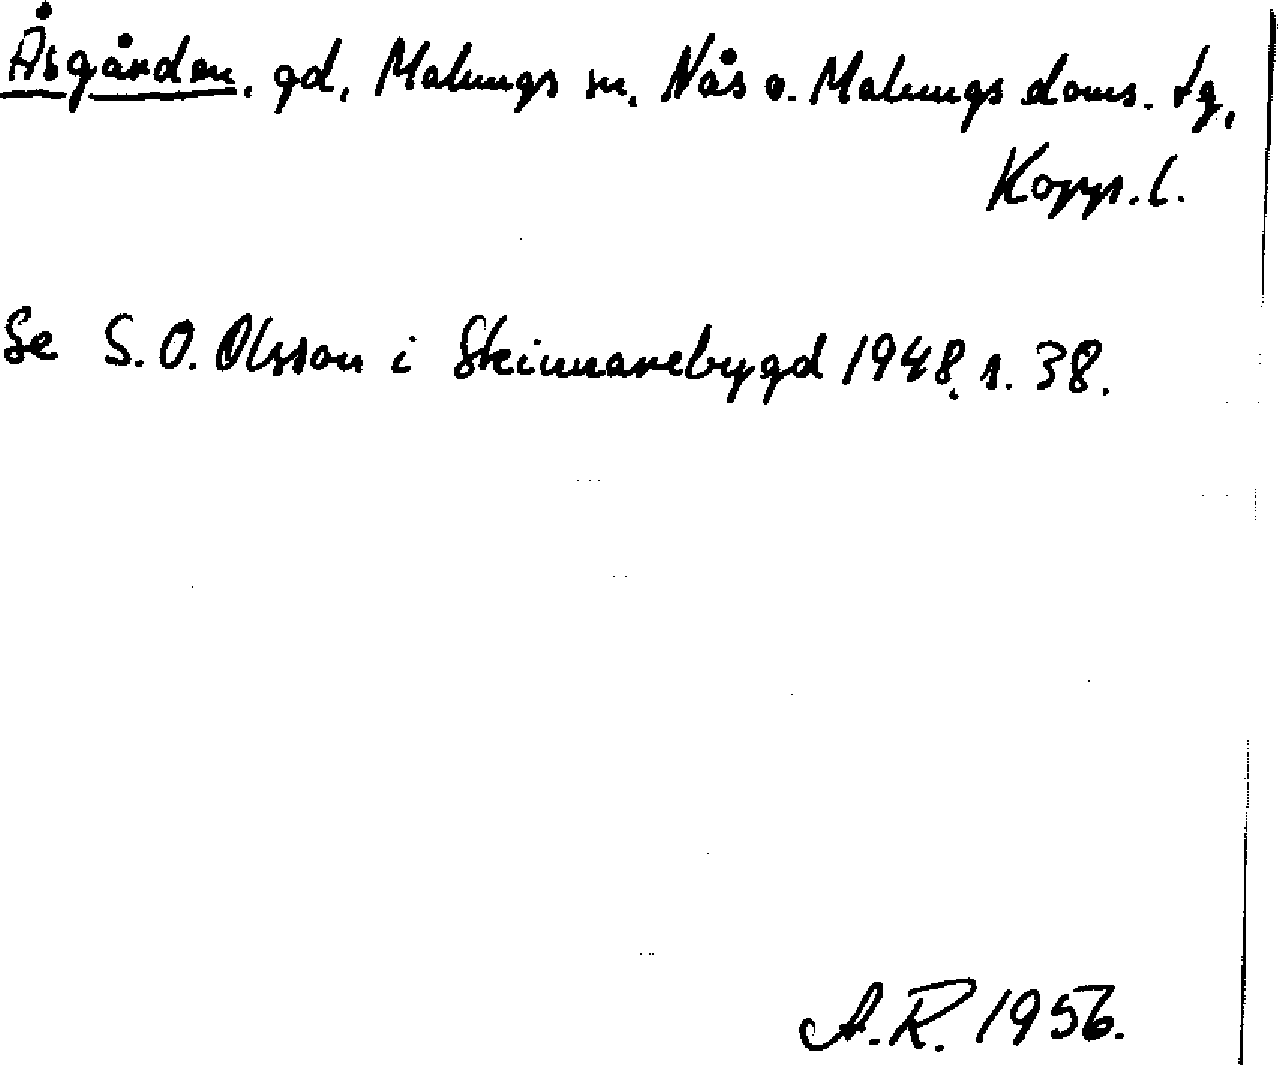 Åsgården, gd, Malungs sn, Nås o. Malungs doms. tg,
Kopp. l.
Se S. O. Olsson i Skinnarebygd 1948, s. 38.
A. R. 1956.